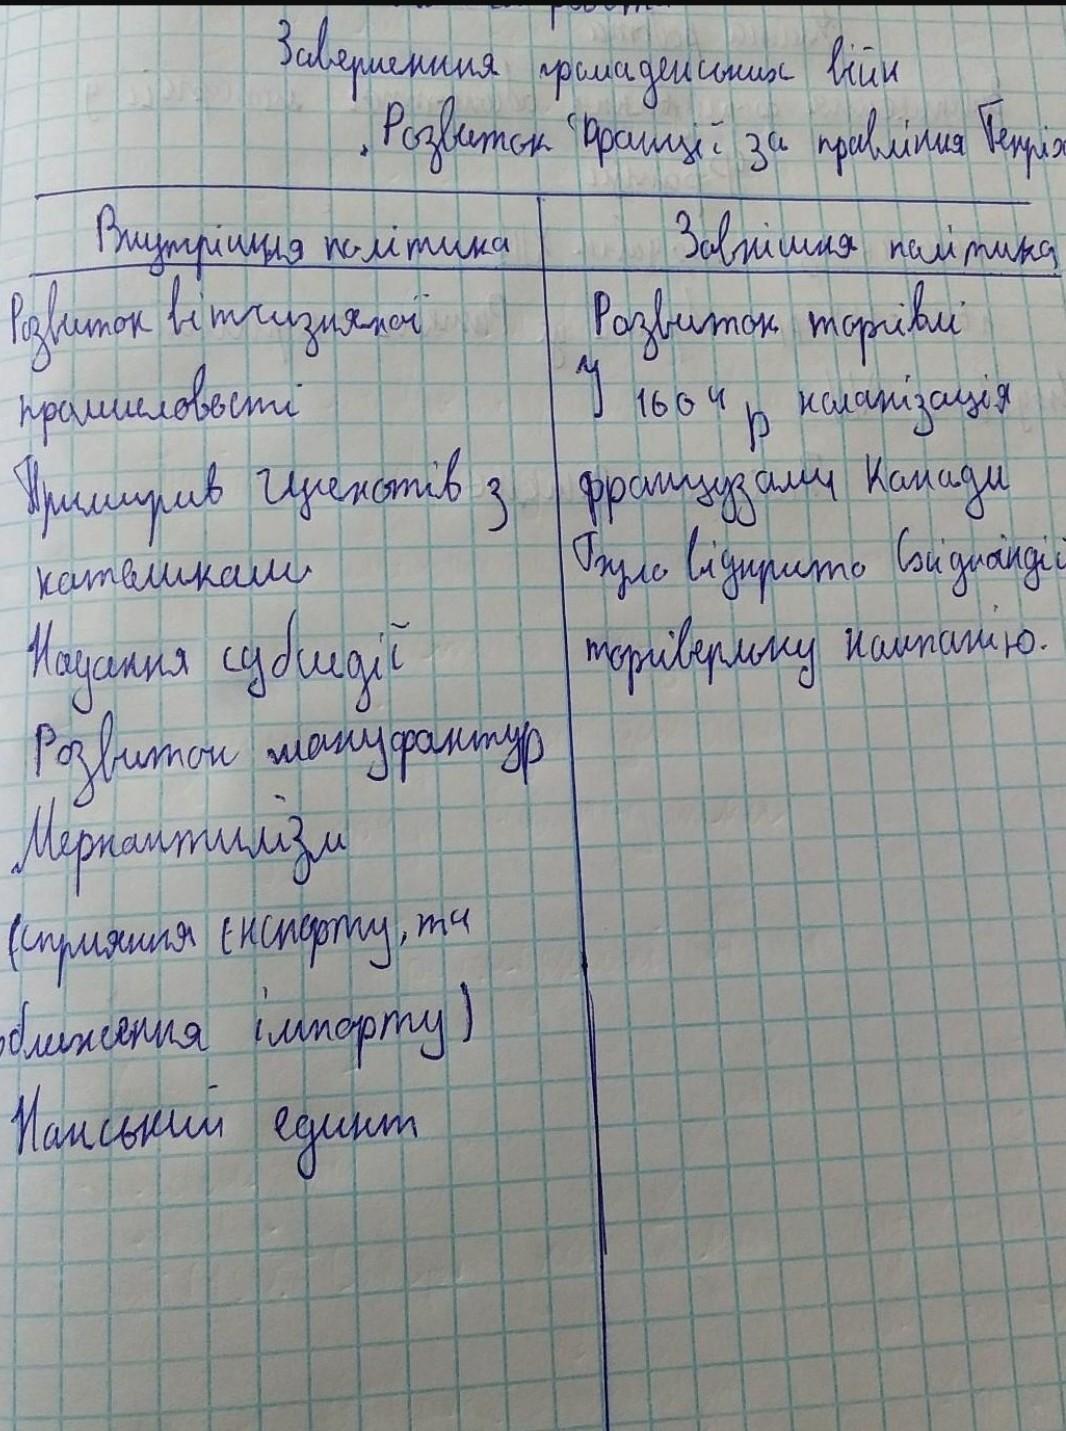 Завершення громадянських війн
"Розвиток Франції за правління Генріх
Внутрішня політика
Зовнішня політика
Розвиток вітчизняної
промисловості
Примирив гугенотів з
католиками
Надання субсидії
Розвиток мануфактур
Меркантилізм
(сприяння експорту, та
обмеження імпорту)
Нанський едикт
Розвиток торівлі
У 1604 р колонізація
французами Канади
Було відкрито
торівельну компанію.